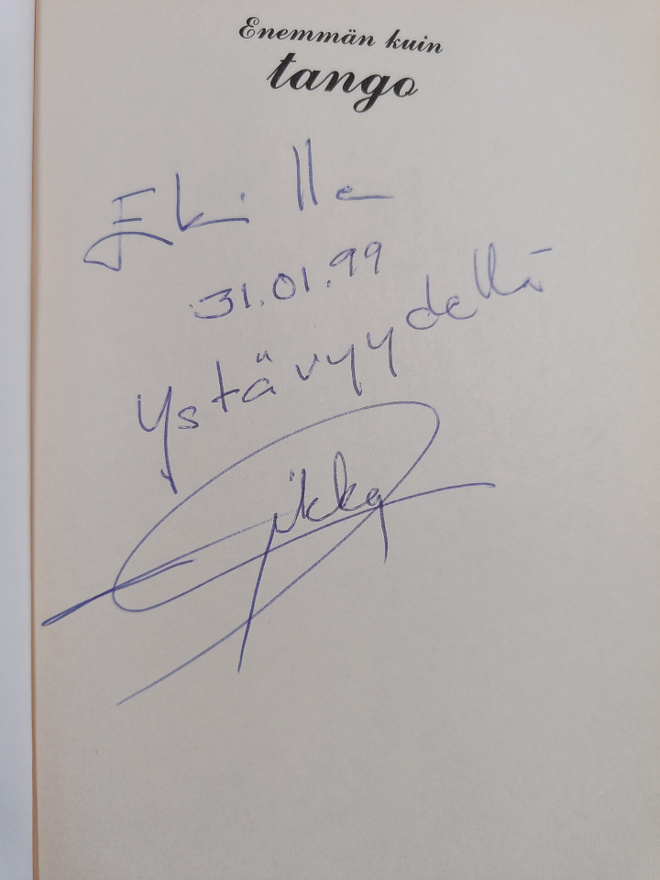 Enemmän kuin
tango
Ekille
31.01.99
Ystävyydellä